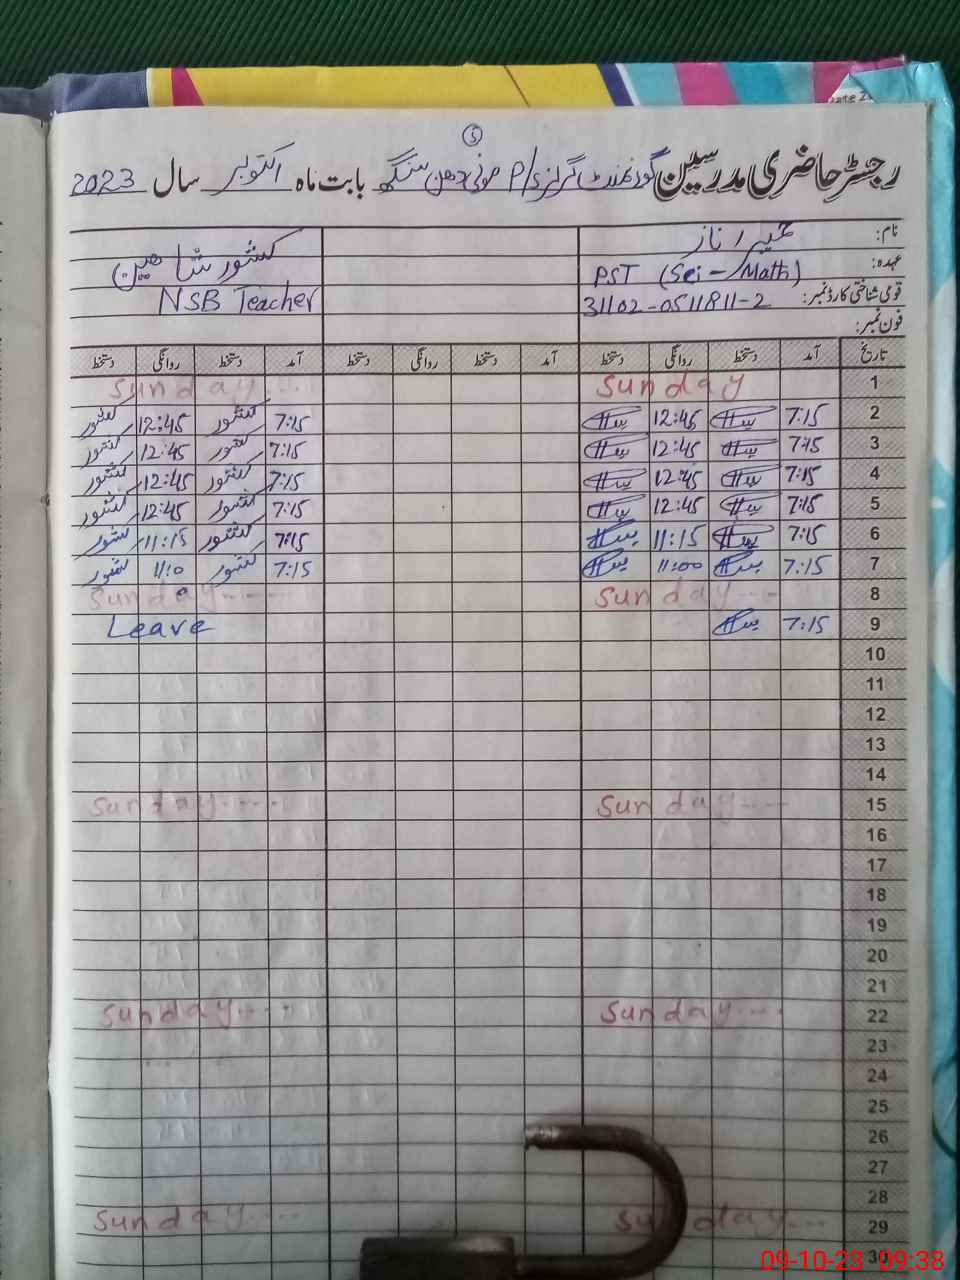 5
رجسٹر حاضری مدرسین گورنمنٹ گرلز P/S موتی دھن سنگھ بابت ماہ اکتوبر سال 2023
نام: کشور شاہین
عہدہ: PST (Sci - Math) NSB Teacher
قومی شناختی کارڈ نمبر: 31102-0511811-2
فون نمبر:
تاریخ آمد دستخط روانگی دستخط آمد دستخط روانگی دستخط آمد دستخط روانگی دستخط
1 Sunday Sunday
2 7:15 12:45 7:15 کشور 12:45 کشور
3 7:15 12:45 7:15 کشور 12:45 کشور
4 7:15 12:45 7:15 کشور 12:45 کشور
5 7:15 12:45 7:15 کشور 12:45 کشور
6 7:15 11:15 7:15 کشور 11:15 کشور
7 7:15 11:00 7:15 کشور 11:0 کشور
8 Sunday Sunday
9 7:15 Leave
10
11
12
13
14
15 Sunday Sunday
16
17
18
19
20
21
22 Sunday Sunday
23
24
25
26
27
28
29 Sunday Sunday
30
09-10-23 09:38